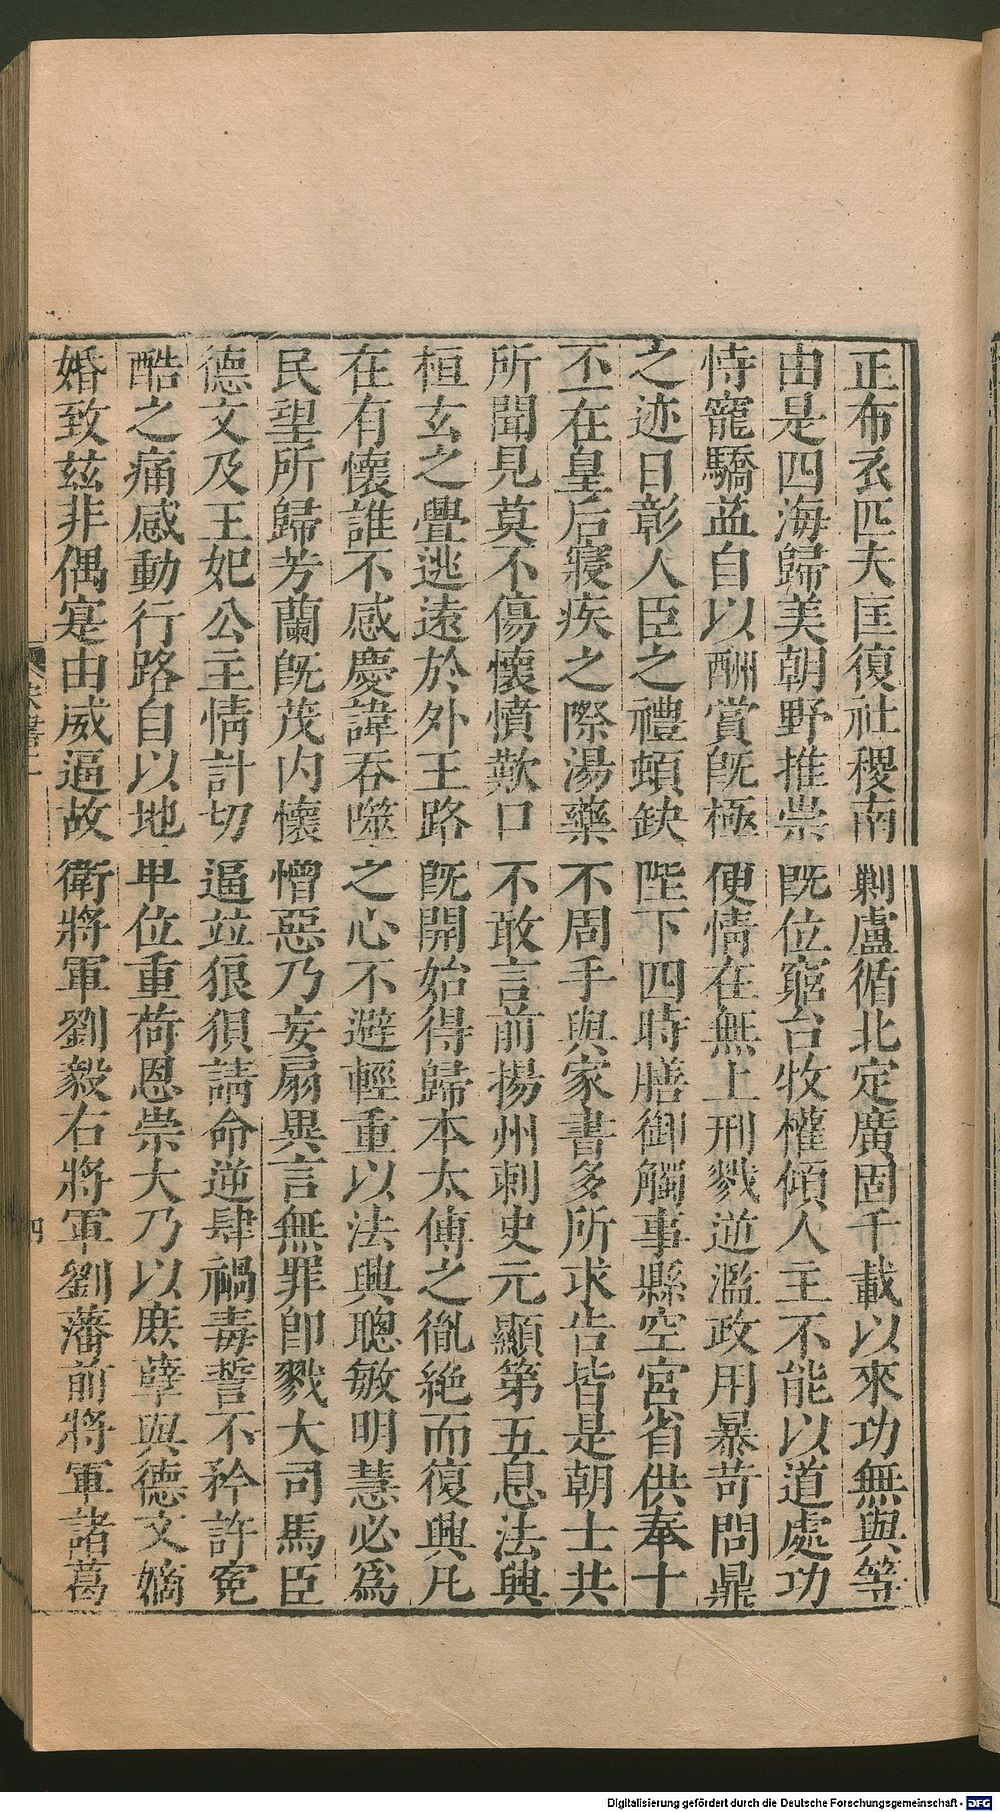 正布衣匹夫匡復社稷南剿盧循北定廣固千載以來功無與等
由是四海歸美朝野推崇既位窮台牧權傾人主不能以道處功
恃寵驕盈自以酬賞既極便情在無上刑戮逆濫政用暴苛問鼎
之迹日彰人臣之禮頓缺陛下四時膳御觸事縣空宮省供奉十
不一在皇后寢疾之際湯藥不周手與家書多所求告皆是朝士共
所聞見莫不傷懷憤歎口不敢言前揚州刺史元顯第五息法興
桓玄之釁逃遠於外王路既開始得歸本太傅之胤絕而復興凡
在有懷誰不感慶諱吞噬之心不避輕重以法興聰敏明慧必爲
民望所歸芳蘭既茂內懷憎惡乃妄扇異言無罪即戮大司馬臣
德文及王妃公主情計切逼竝狼狽請命逆肆禍毒誓不矜許冤
酷之痛感動行路自以地卑位重荷恩崇大乃以庶孽與德文嫡
婚致茲非偶寔由威逼故衛將軍劉毅右將軍劉藩前將軍諸葛
四
Digitalisierung gefördert durch die Deutsche Forschungsgemeinschaft - DFG